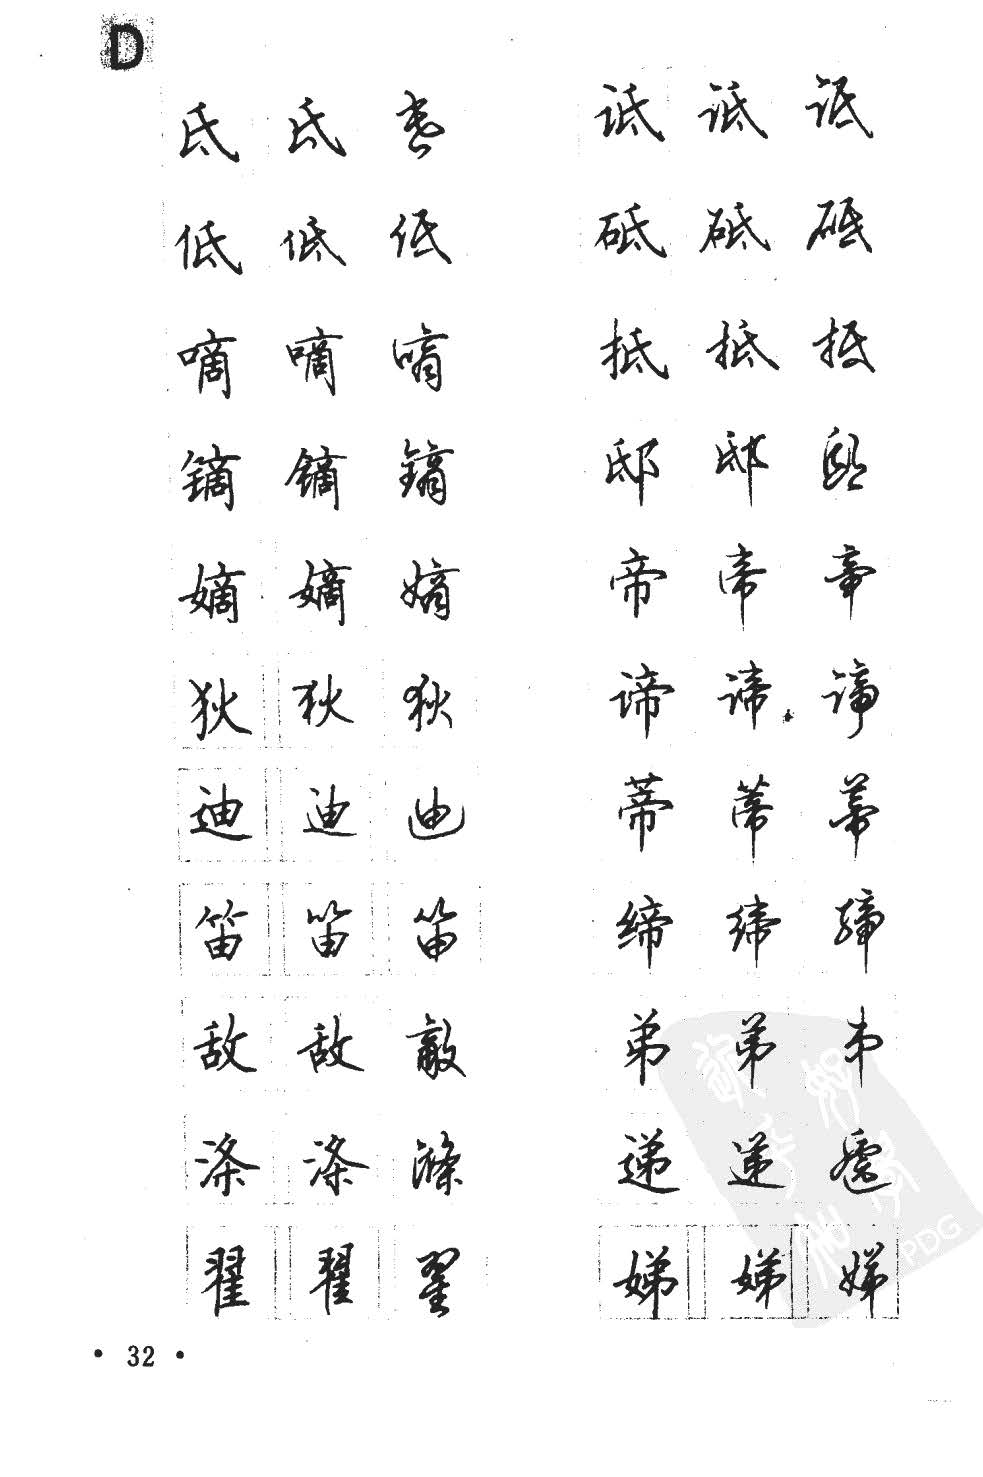 D
氐 氐 氐 诋 诋 诋
低 低 低 砥 砥 砥
嘀 嘀 嘀 抵 抵 抵
镝 镝 镝 邸 邸 邸
嫡 嫡 嫡 帝 帝 帝
狄 狄 狄 谛 谛 谛
迪 迪 迪 蒂 蒂 蒂
笛 笛 笛 缔 缔 缔
敌 敌 敵 弟 弟 弟
涤 涤 滌 递 递 遞
翟 翟 翟 娣 娣 娣
PDG
• 32 •